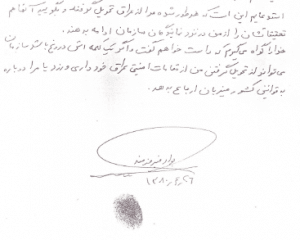 استدعایم این است که هر طور شده مرا از عراق تحویل گرفته و بگویید تا تمام
تحقیقاتشان را از من در نزد نمایندگان سازمان ادامه بدهند.
خدا را گواه میگیرم که راست خواهم گفت و اگر یک کلمه دروغ سازمان
می‌تواند از تحویل گرفتن من از مقامات امنیتی عراق خودداری ورزد یا مرا دوباره
به قوانین کشور میزبان ارجاع بدهد.